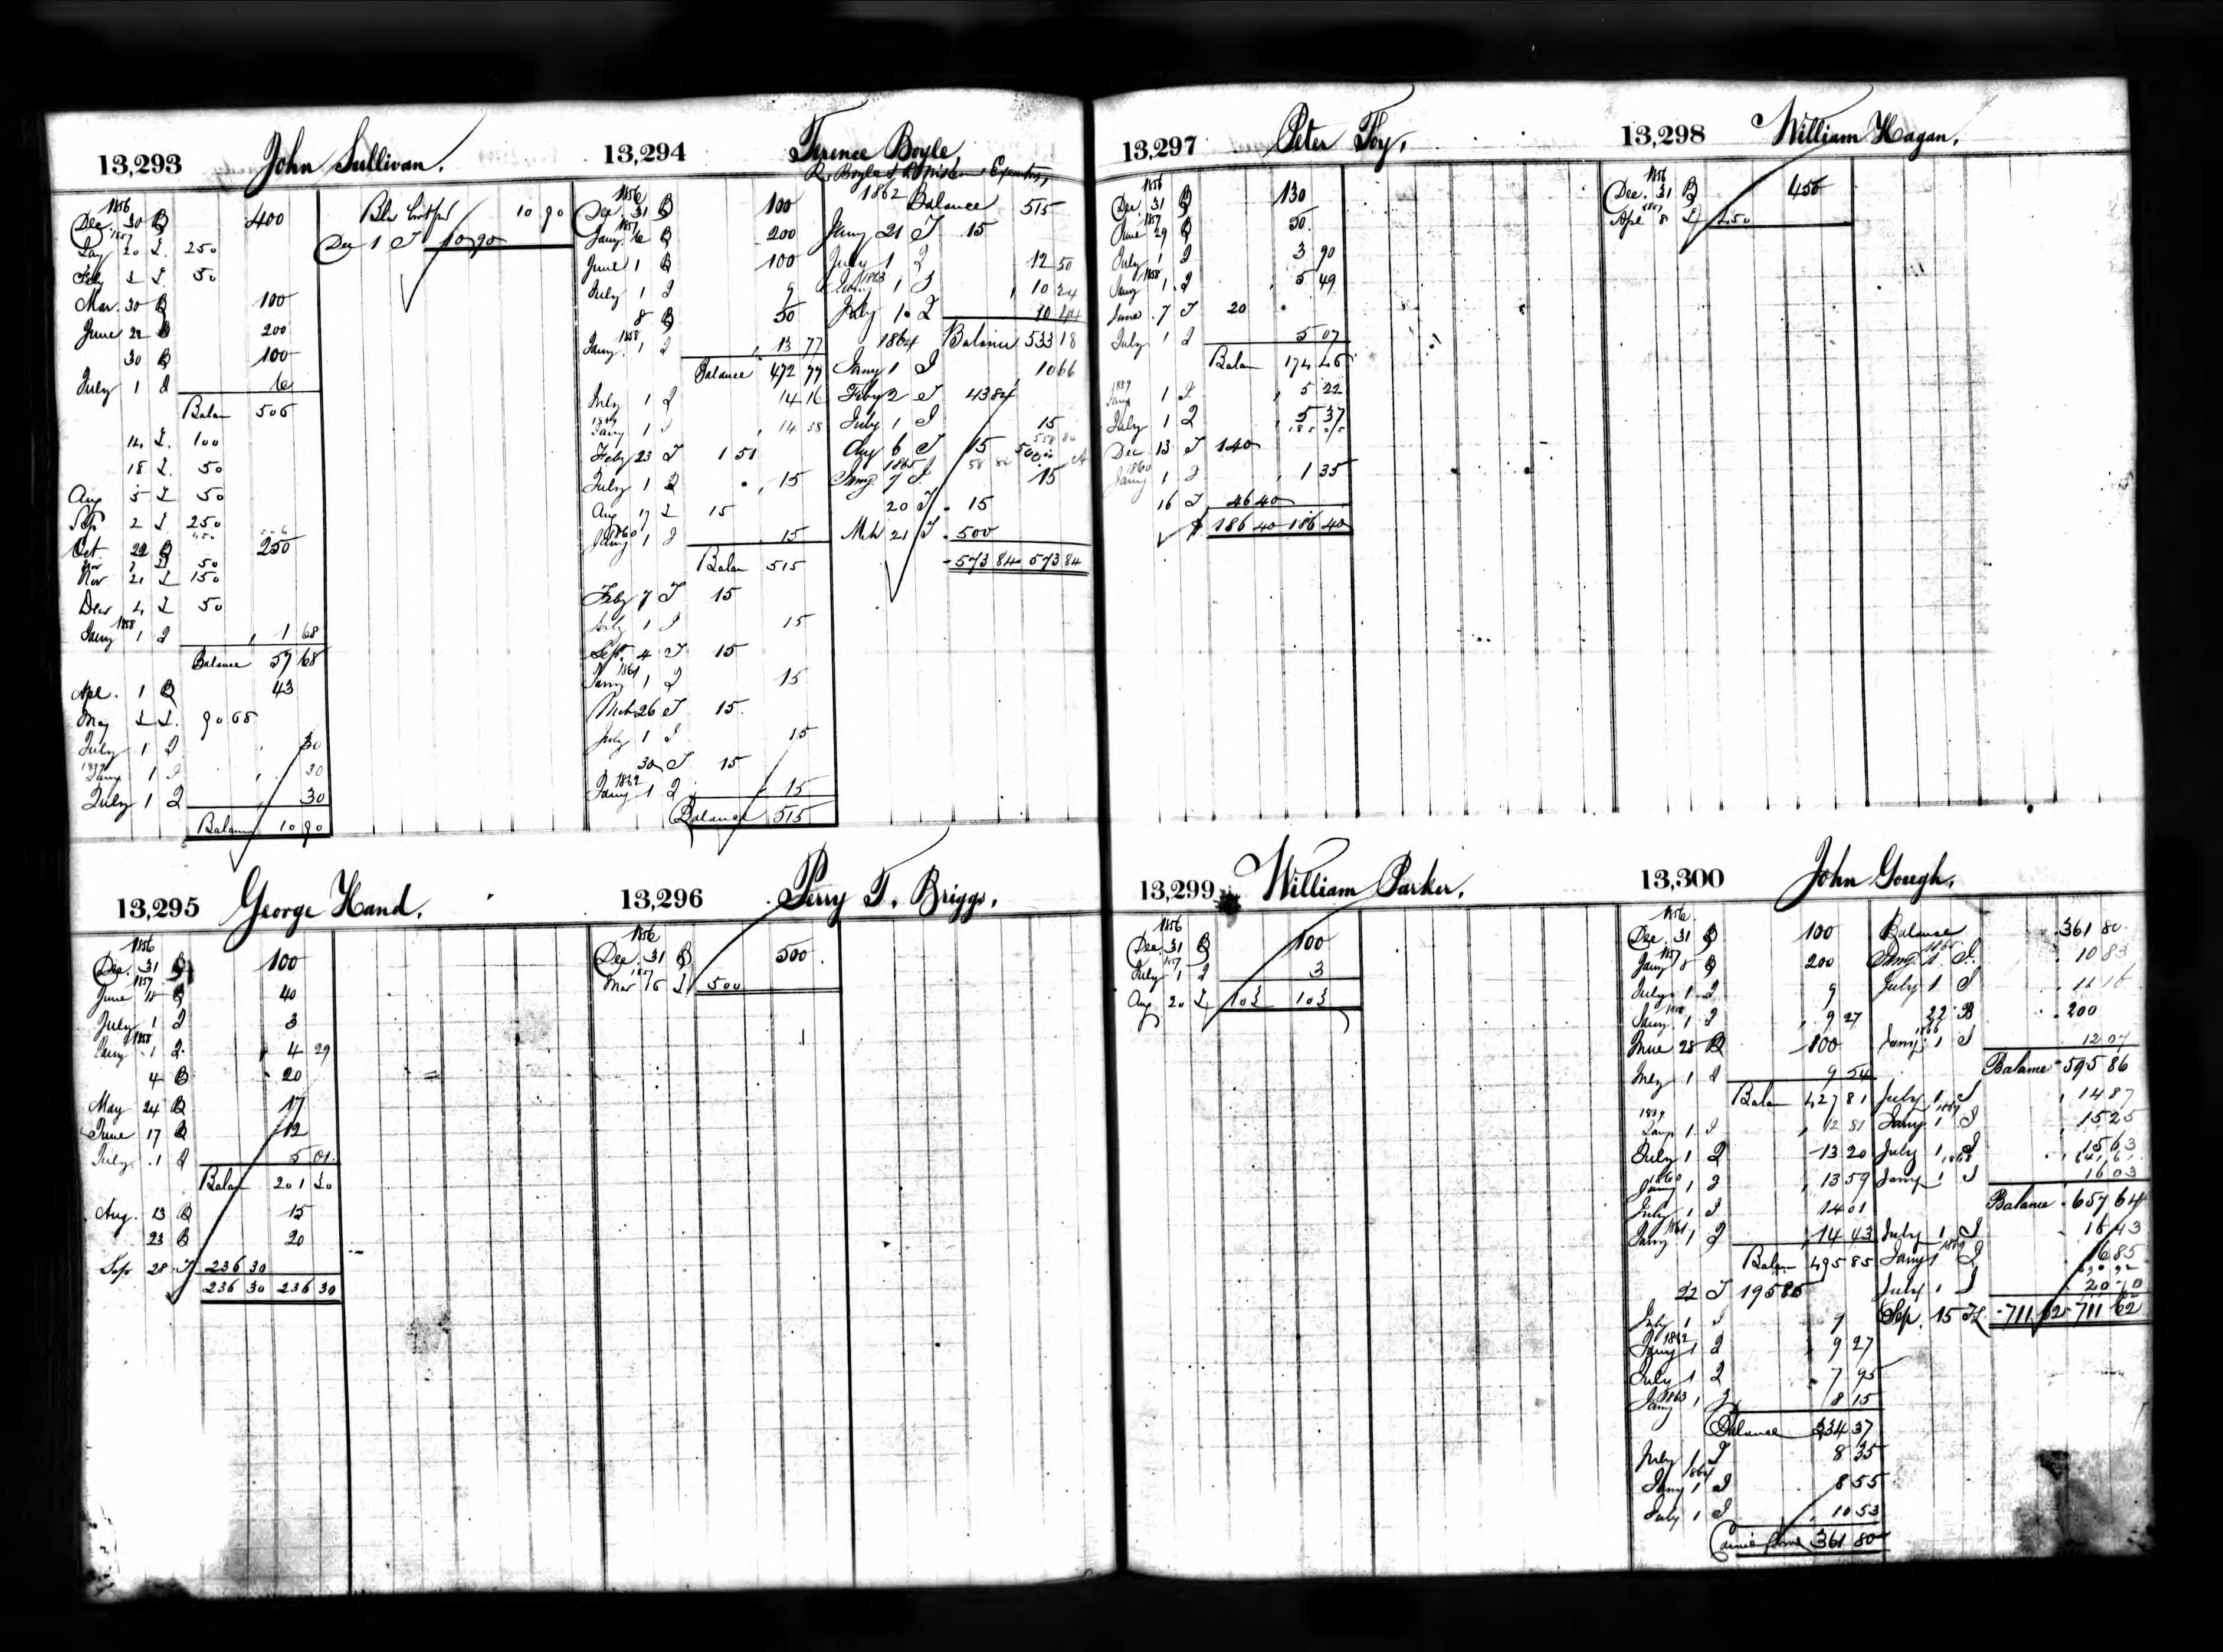 13,293 John Sullivan.
1856
Dec. 30 B 400
1857
20 L. 250
Feby 2 L 50
Mar. 30 B 100
June 22 B 200
30 B 100
July 1 I 6
Balan 506
14 L. 100
18 L. 50
Aug 5 L 50
Sep 2 L 250
Oct. 22 B 250
Nov 2 L 50
Nov 21 L 150
Dec 4 L 50
1858
Jany 1 I 1 68
Balance 57 68
Apl. 1 B 43
May 90 68
July 1 I 30
1859
Jany 1 I 30
July 1 I 30
Balance 10 90
10 90
Dec 1 T 10 90
13,294 Terence Boyle
1856
Dec. 31 B 100
1857
Jany. 16 B 200
June 1 B 100
July 1 I 9
8 B 50
1858
Jany. 1 I 13 77
Balance 472 77
July 1 I 14 16
1859
Jany 1 I 14 58
Feby 23 T 1 51
July 1 I 15
Aug 17 L 15
1860
Jany 1 I 15
Balan 515
Feby 7 T 15
July 1 I 15
Sept. 4 T 15
1861
Jany 1 I 15
Mch 26 T 15
July 1 I 15
30 T 15
1862
Jany 1 I 15
Balance 515
1862 Balance 515
Jany 21 T 15
July 1 I 12 50
1863
Jany 1 I 10 24
July 1 I 10 44
1864 Balance 533 18
Jany 1 I 10 66
Feby 2 T 43 84
July 1 I 15
Aug 6 T 15
1865
Jany 7 I 15
20 T 15
Mch 21 T 500
573 84 573 84
13,295 George Hand.
1856
Dec. 31 B 100
1857
June 18 B 40
July 1 I 3
1858
Jany 1 I 4 29
4 B 20
May 24 B 17
June 17 B 12
July 1 I 5 01
Balan 201 30
Aug. 13 B 15
23 B 20
Sep 28 T 236 30
236 30 236 30
13,296 Perry T. Briggs.
1856
Dec. 31 B 500
1857
Mar 16 L 500
13,297 Peter Toy.
1856
Dec. 31 B 130
1857
June 29 B 50
July 1 I 3 90
1858
Jany 1 I 5 49
June 7 T 20
July 1 I 5 07
Balan 174 46
1859
Jany 1 I 5 22
July 1 I 5 37
185 05
Dec 13 T 140
1860
Jany 1 I 1 35
16 T 46 40
$ 186 40 186 40
13,298 William Hagan.
1856
Dec. 31 B 450
1857
Apl 8 L 450
13,299 William Parker.
1856
Dec. 31 B 100
1857
July 1 I 3
Aug 20 L 103 103
13,300 John Gough.
1856
Dec. 31 B 100
1857
Jany 8 B 200
July 1 I 9
1858
Jany. 1 I 9 27
June 28 B 100
July 1 I 9 54
Balan 427 81
1859
Jany 1 I 12 81
July 1 I 13 20
1860
Jany 1 I 13 59
July 1 I 14 01
1861
Jany 1 I 14 43
Balan 495 85
22 T 195 85
July 1 I 9
1862
Jany 1 I 9 27
July 1 I 7 95
1863
Jany 1 I 8 15
Balance 334 37
July 1 I 8 35
1864
Jany 1 I 8 55
July 1 I 10 53
361 80
Balance 361 80
1865
Jany 1 I. 10 83
July 1 I 11 16
22 B 200
1866
Jany 1 I 12 07
Balance 595 86
July 1 I 14 87
1867
Jany 1 I 15 25
July 1 I 15 63
1868
Jany 1 I 16 03
Balance 657 64
July 1 I 16 43
1869
Jany 1 I 16 85
July 1 I 20 70
Sep. 15 711 62 711 62